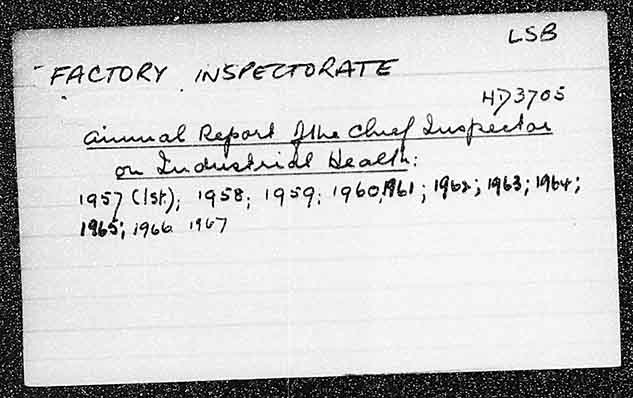 LSB
FACTORY INSPECTORATE
HD3705
Annual Report of the Chief Inspector
on Industrial Health:
1957 (1st.); 1958; 1959; 1960, 1961; 1962; 1963; 1964;
1965; 1966 1967